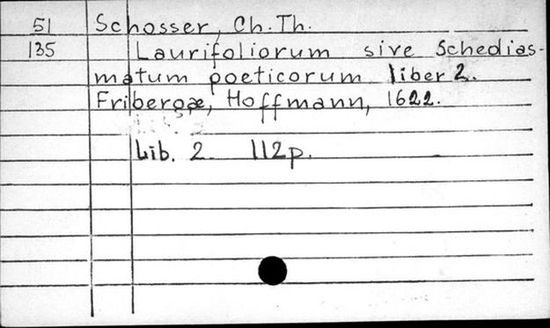 51 Schosser, Ch. Th.
135 Laurifoliorum sive Schedias-
matum poeticorum liber 2.
Fribergæ, Hoffmann, 1622.
Lib. 2 112p.